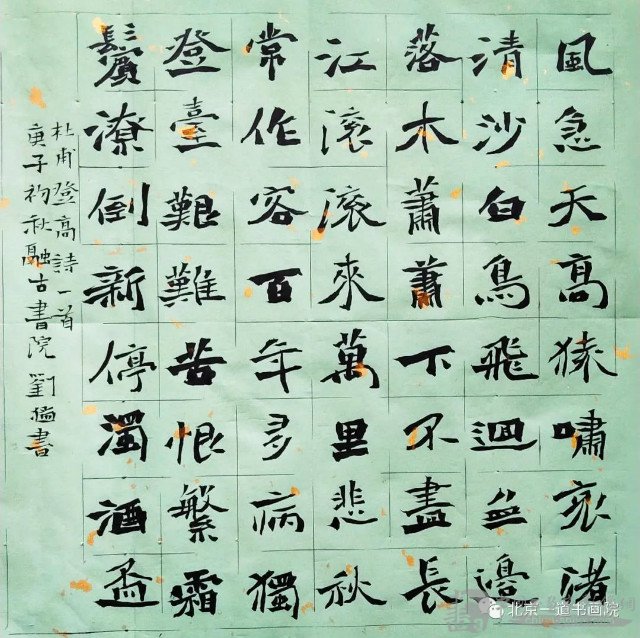 風急天高猿嘯哀渚
清沙白鳥飛迴無邊
落木蕭蕭下不盡長
江滾滾來萬里悲秋
常作客百年多病獨
登臺艱難苦恨繁霜
鬢潦倒新停濁酒盃
杜甫登高詩一首
庚子初秋融古書院劉書
北京一道书画院